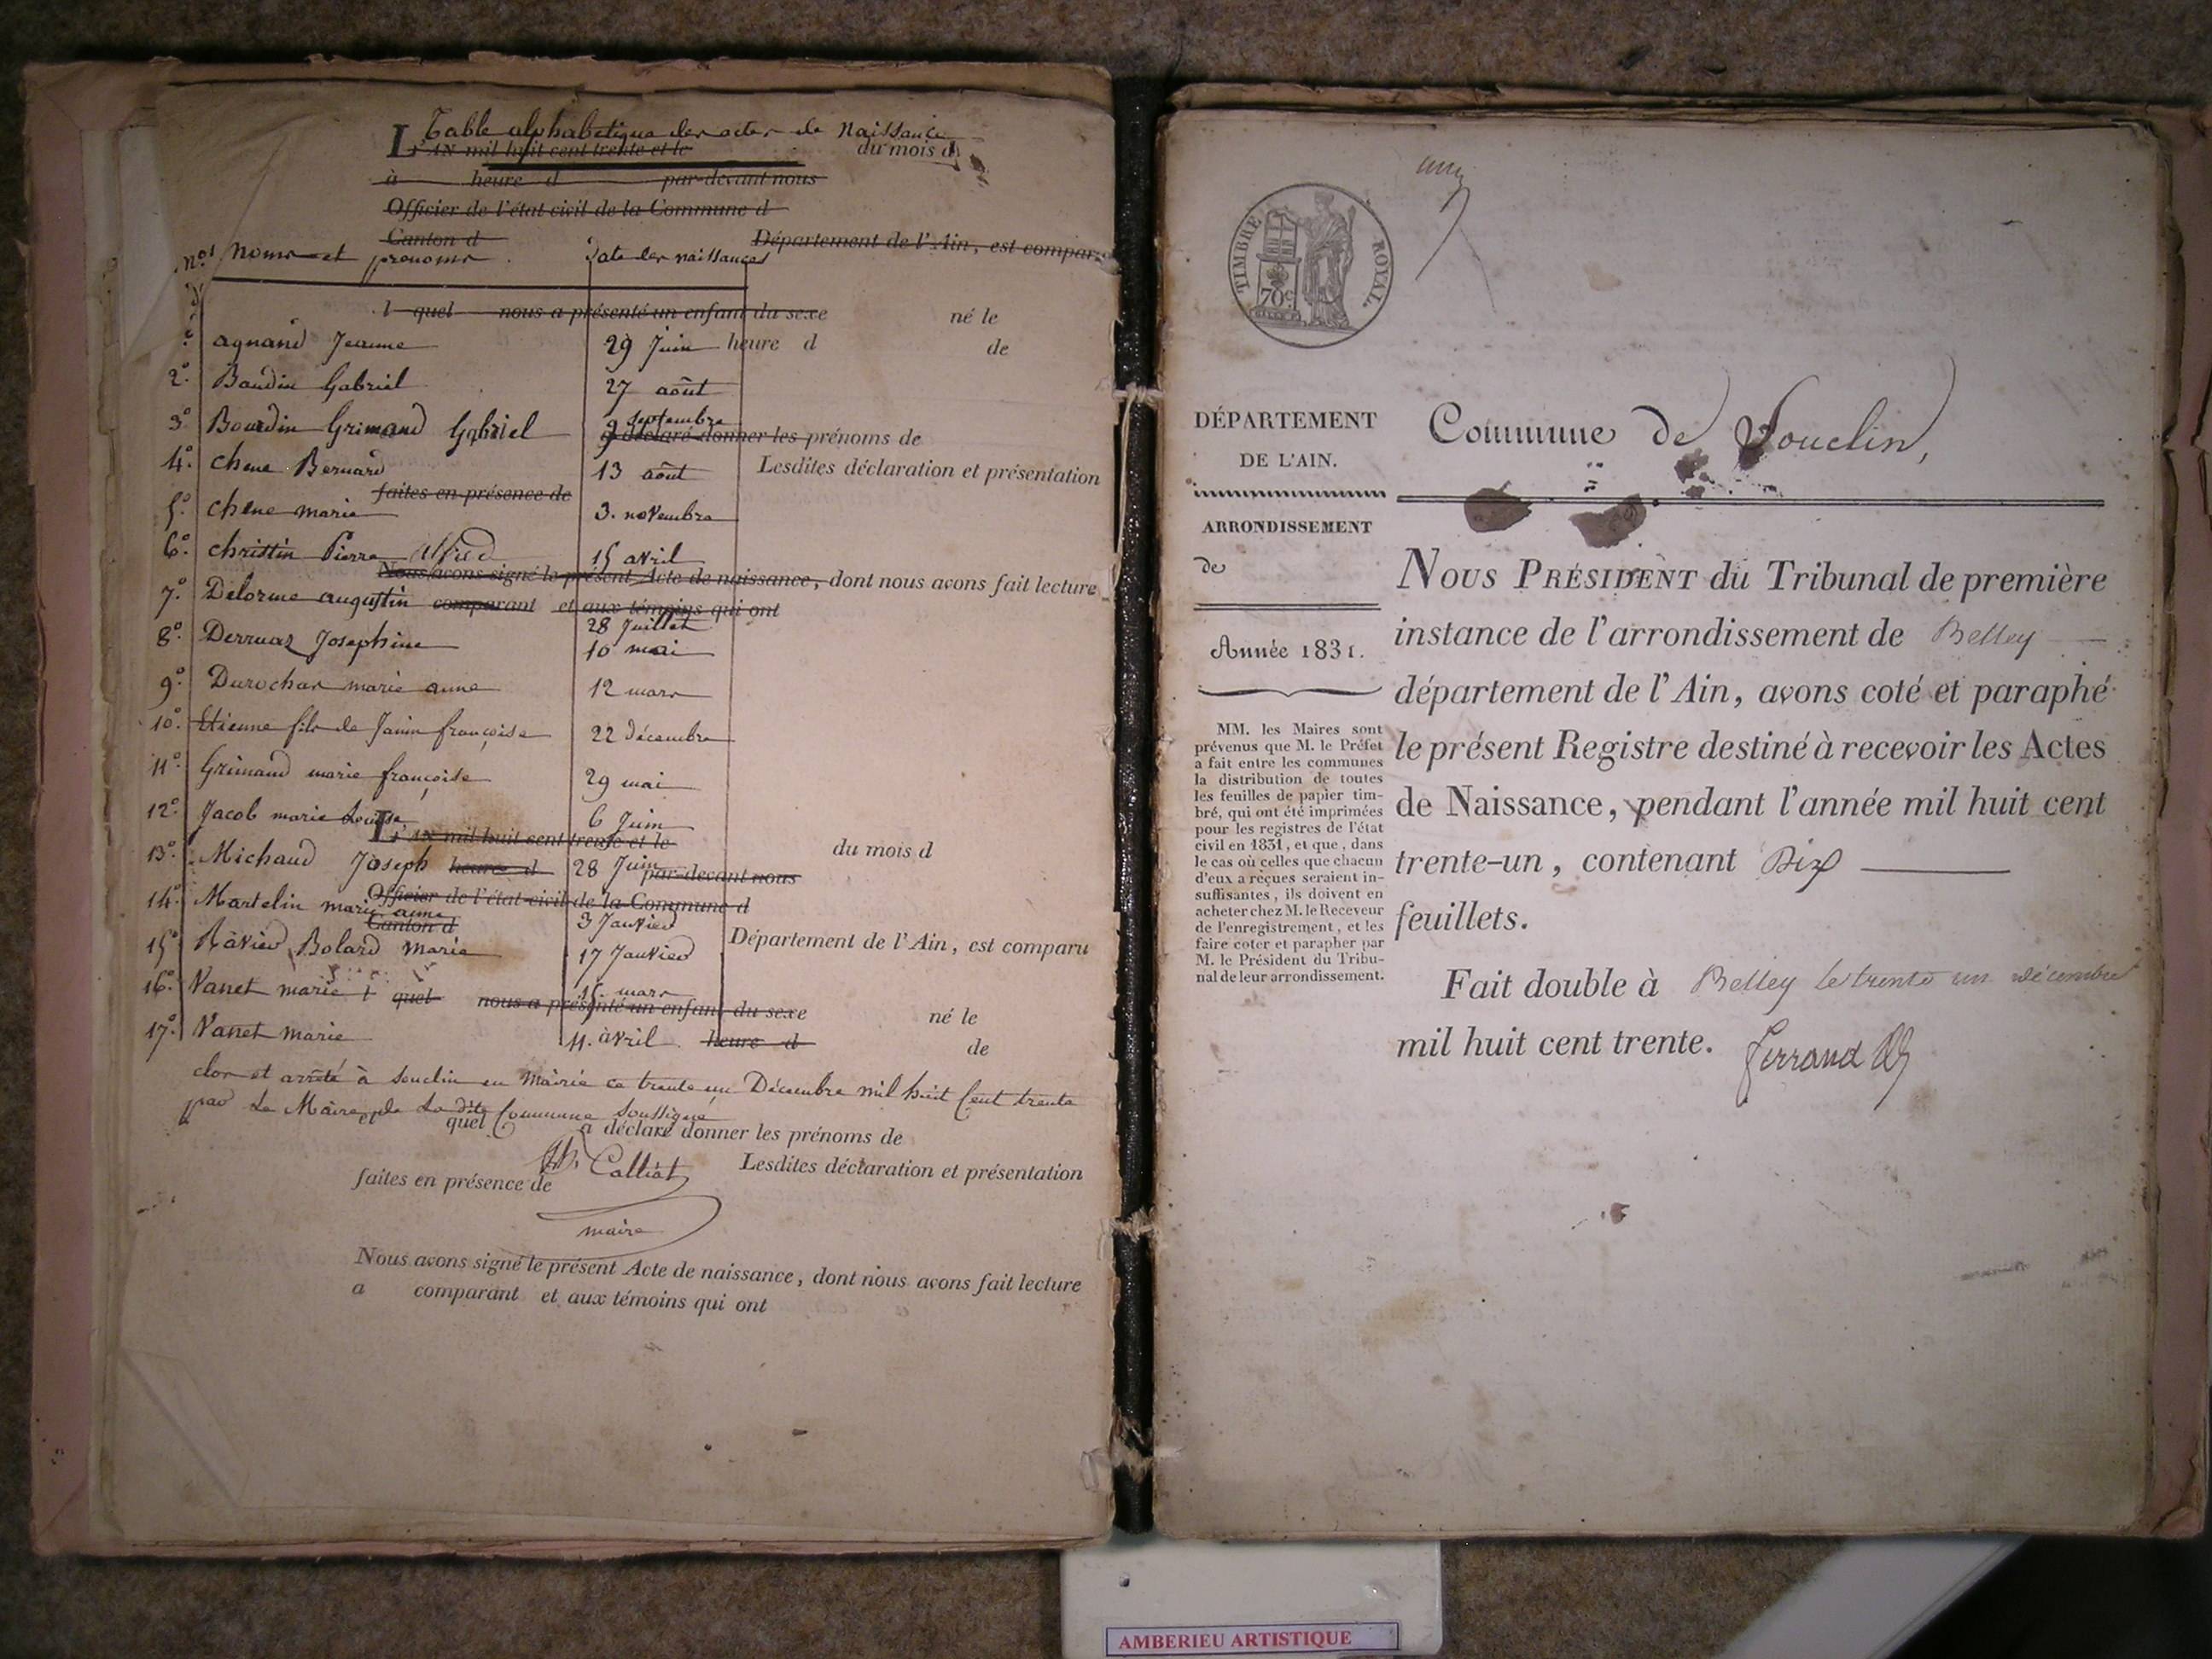 Table alphabetique des actes de Naissance
L'AN mil huit cent trente et le du mois d
à heure d par-devant nous
Officier de l'état civil de la Commune d
Canton d Département de l'Ain, est compar
Nos Noms et prenoms. Date des naissances
l quel nous a présenté un enfant du sexe né le
agnand Jeanne 29 Juin heure d de
2º Baudin Gabriel 27 août
3º Bourdin Grimand Gabriel 9 septembre
a déclaré donner les prénoms de
4º chene Bernard 13 août Lesdites déclaration et présentation
faites en présence de
5º chene marie 3. novembre
6º christin Pierre Alfred 15 avril
Nous avons signé le présent Acte de naissance, dont nous avons fait lecture
7º Delorme augustin 28 Juillet
comparant et aux témoins qui ont
8º Derruaz Josephine 10 mai
9º Durochar marie anne 12 mars
10º Etienne fils de Janin françoise 22 décembre
11º Grimand marie françoise 29 mai
12º Jacob marie Louise 6 Juin
L'AN mil huit cent trente et le du mois d
13º Michaud Joseph 28 Juin
heure d par-devant nous
Officier de l'état civil de la Commune d
14º Martelin marie anne 3 Janvier
Canton d Département de l'Ain, est comparu
15º Ravier Bolard marie 17 Janvier
16º Vanet marie 15. mars
l quel nous a présenté un enfant du sexe né le
17º Vanet marie 11. avril heure d de
clos et arrêté à Souclin en Mairie ce trente un Décembre mil huit Cent trente
par Le Maire de La dite Commune Soussigné
et quel a déclaré donner les prénoms de
Calliat Lesdites déclaration et présentation
faites en présence de
maire
Nous avons signé le présent Acte de naissance, dont nous avons fait lecture
a comparant et aux témoins qui ont
TIMBRE ROYAL.
70 c.
DÉPARTEMENT
DE L'AIN.
Commune de Souclin,
ARRONDISSEMENT
de
Année 1831.
MM. les Maires sont
prévenus que M. le Préfet
a fait entre les communes
la distribution de toutes
les feuilles de papier tim-
bré, qui ont été imprimées
pour les registres de l'état
civil en 1831, et que, dans
le cas où celles que chacun
d'eux a reçues seraient in-
suffisantes, ils doivent en
acheter chez M. le Receveur
de l'enregistrement, et les
faire coter et parapher par
M. le Président du Tribu-
nal de leur arrondissement.
NOUS PRÉSIDENT du Tribunal de première
instance de l'arrondissement de Belley
département de l'Ain, avons coté et paraphé
le présent Registre destiné à recevoir les Actes
de Naissance, pendant l'année mil huit cent
trente-un, contenant Dix
feuillets.
Fait double à Belley le trente un décembre
mil huit cent trente. Ferrand
AMBERIEU ARTISTIQUE